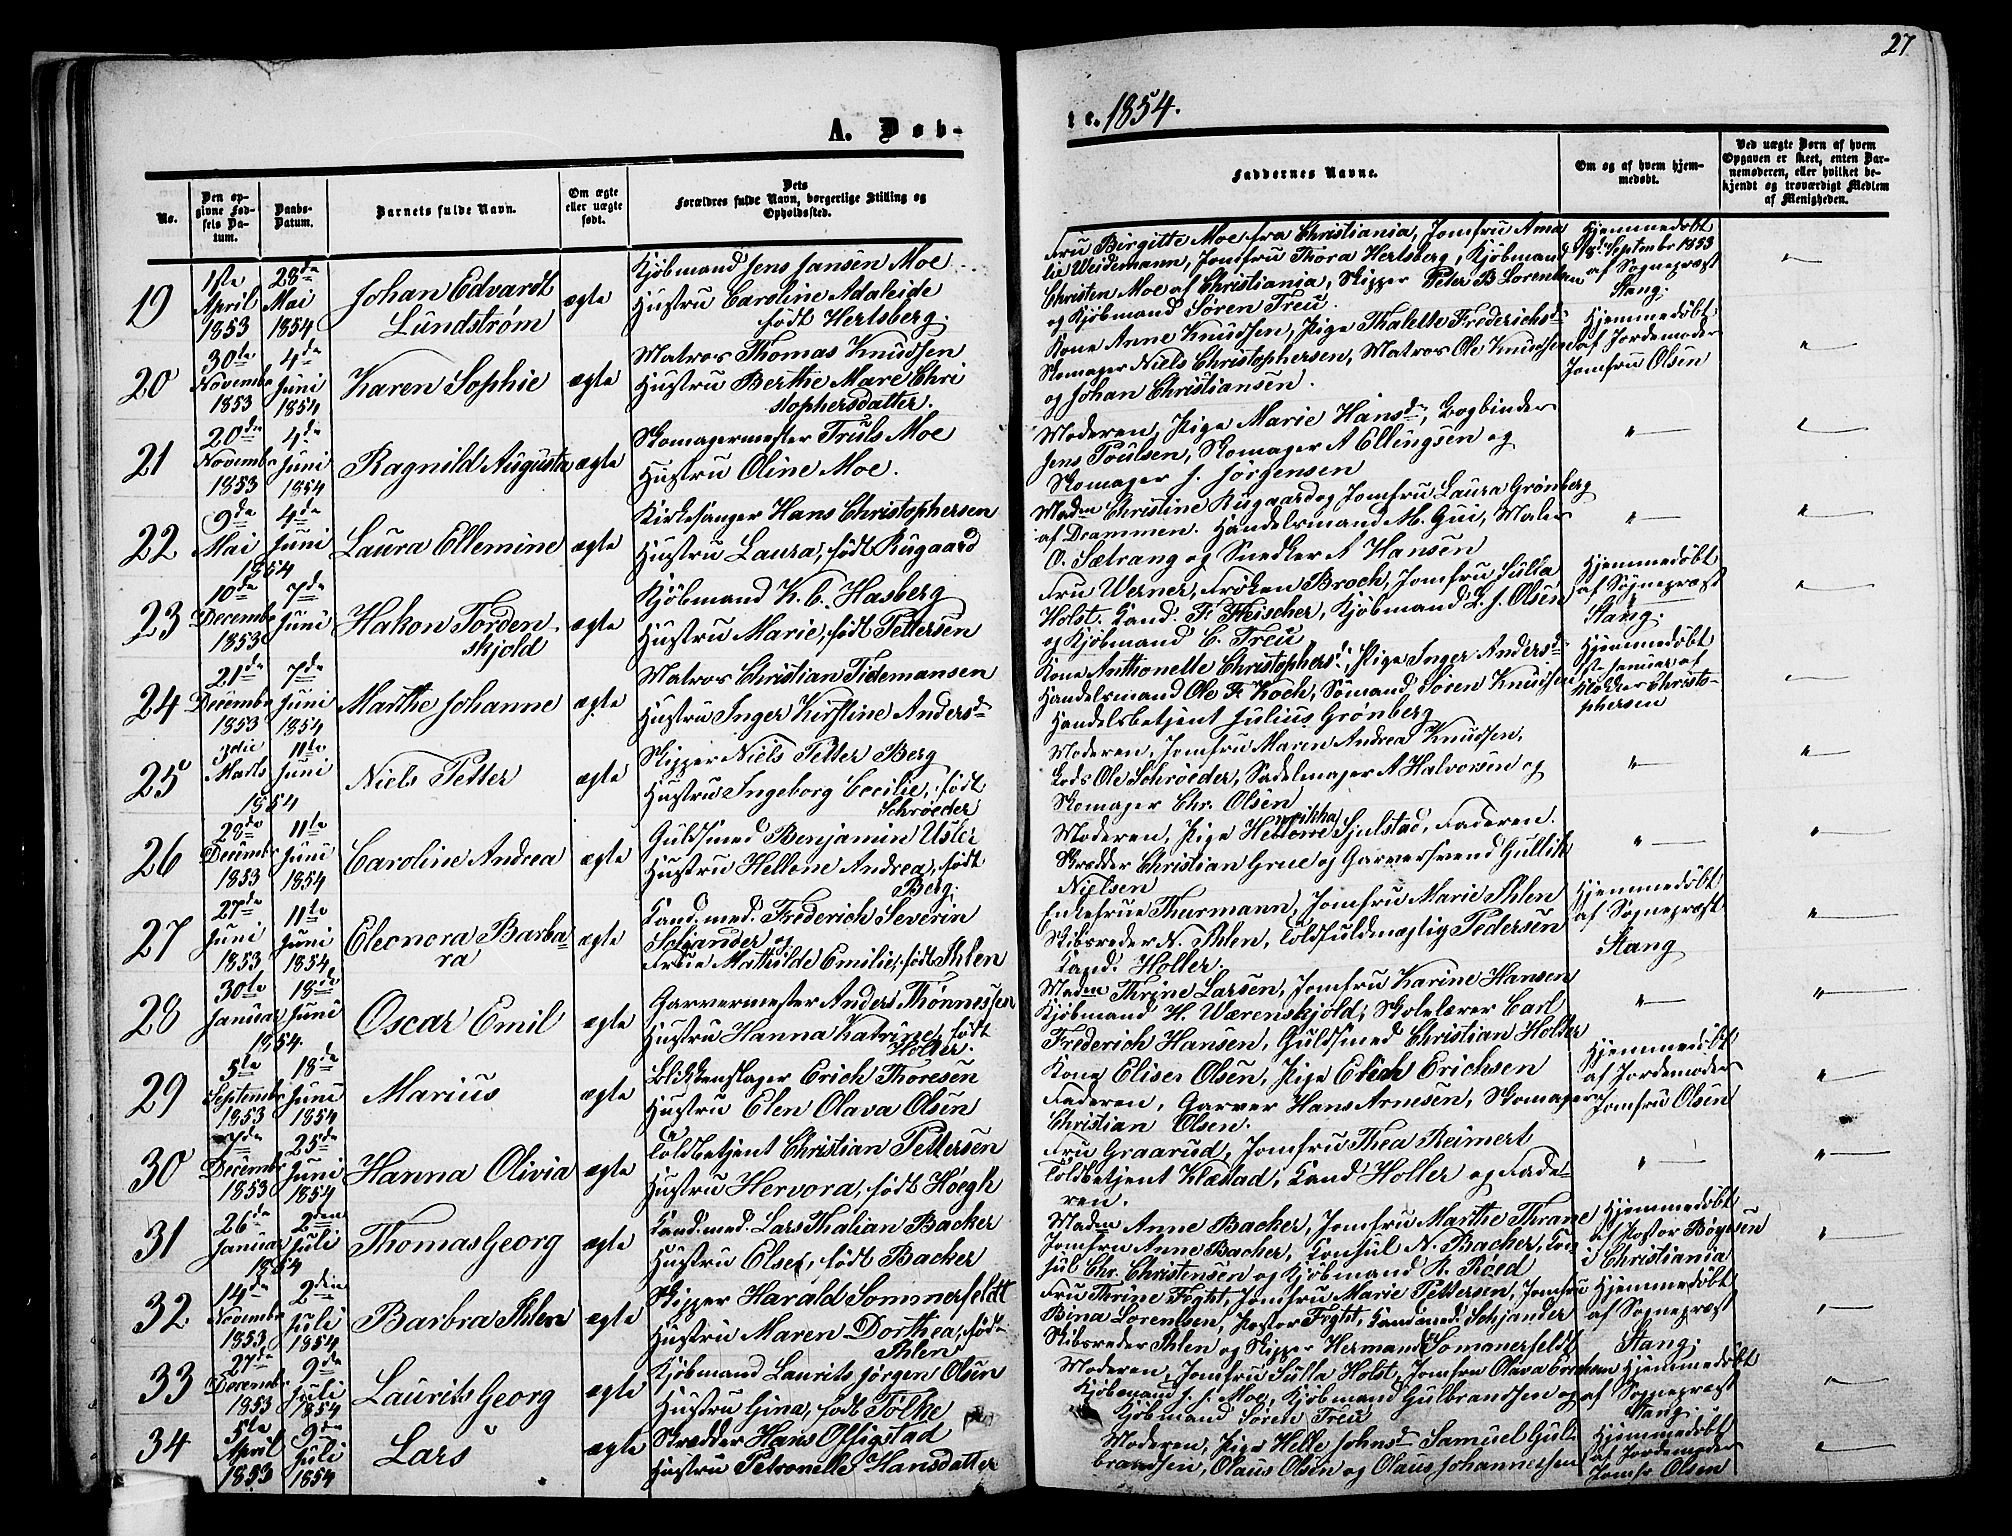 27
A. Døb-
te. 1854.
No.
Den op-
givne Fød-
sels Da-
tum.
Daabs-
Datum.
Barnets fulde Navn.
Om ægte
eller uægte
født.
Dets
Forældres fulde Navn, borgerlige Stilling og
Opholdssted.
Faddernes Navne.
Om og af hvem hjem-
medøbt.
Ved uægte Børn af hvem
Opgaven er skeet, enten Bar-
nemoderen, eller hvilket be-
kjendt og troværdigt Medlem
af Menigheden.
19
1ste
April
1853
28de
Mai
1854
Johan Edvardt
Lundstrøm
ægte
Kjøbmand Jens Jansen Moe
Hustru Caroline Adaleide
født Hertsberg.
Fru Birgitte Moe fra Christiania, Jomfru Ama
lie Weidemann, Jomfru Thora Hertsberg, Kjøbmand
Christen Moe af Christiania, Skipper Peter B Lorentsen
og Kjøbmand Søren Treu.
Hjemmedøbt
8 Septembr 1853
af Sognepræst
Stang.
20
30te
Novembr
1853
4de
Juni
1854
Karen Sophie
ægte
Matros Thomas Knudsen
Hustru Berthe Mare Chri
stophersdatter.
Kone Anne Knudsen, Pige Thalette Frederichsdr
Skomager Niels Christophersen, Matros Ole Knudsen
og Johan Christiansen.
Hjemmedøbt
af Jordemoder
Jomfru Olsen
21
20de
Novembr
1853
4de
Juni
1854
Ragnild Augusta
ægte
Skomagermester Truls Moe
Hustru Oline Moe.
Moderen, Pige Marie Hansdr, Bogbinder
Jens Poulsen, Skomager A Ellingsen og
Skomager J. Jørgensen
22
9de
Mai
1854
4de
Juni
Laura Ellemine
ægte
Kirkesanger Hans Christophersen
Hustru Laura, født Rugaard
Madm Christine Rugaard og Jomfru Laura Grønberg
af Drammen. Handelsmand M. Gui, Maler
O. Sætrang og Snedker A Hansen
23
10de
Decembr
1853
7de
Juni
Hakon Torden
skjold
ægte
Kjøbmand K. C. Hasberg
Hustru Marie, født Pettersen
Fru Werner, Frøken Broch, Jomfru Julla
Holst. Cand. F. Fleischer, Kjøbmand L. J. Olsen
og Kjøbmand C. Treu
Hjemmedøbt
af Sognepræst
Stang.
24
21de
Decembr
1853
7de
Juni
1854
Marthe Johanne
ægte
Matros Christian Tidemansen
Hustru Inger Kirstine Andersdr
Kone Anthonette Christophersd, Pige Inger Andersdr
Handelsmand Ole F. Koch, Sømand Søren Knudsen
Handelsbetjent Julius Grønberg
Hjemmedøbt
Januar af
Klokker Christo-
phersen
25
3die
Marts
1854
11te
Juni
Niels Petter
ægte
Skipper Niels Petter Berg
Hustru Ingeborg Cecilie, født
Schrøeder
Moderen, Jomfru Maren Andrea Knudsen,
Lods Ole Schrøeder, Sadelmager A Halvorsen og
Skomager Chr. Olsen
26
28de
Decembr
1853
11te
Juni
1854
Caroline Andrea
ægte
Guldsmed Benjamin Uster
Hustru Hellene Andrea, født
Berg.
Moderen, Pige Sjulstad, Faderen.
Skrædder Christian Grue og Garversvend Gullik
Nielsen
27
27de
Juni
1853
11te
Juni
1854
Eleonora Barba
ra
ægte
Cand. med. Frederich Severin
Schjander og
Frue Mathilde Emilie, født Ihlen
Enkefrue Thurmann, Jomfru Marie Ihlen
Skibsreder N. Ihlen, Toldfuldmægtig Pedersen
Cand. Holler.
Hjemmedøbt
af Sognepræst
Stang
28
30te
Januar
1854.
18de
Juni
Oscar Emil
ægte
Garvermester Anders Thønnessen
Hustru Hanna Katrine, født
Holter.
Madm Thrine Larsen, Jomfru Karine Hansen
Kjøbmand H. Wærenskjold, Skolelærer Carl
Frederich Hansen, Guldsmed Christian Holter
29
5te
Septembr
1853
18de
Juni
1854
Marius
ægte
Blikkenslager Erich Thoresen
Hustru Elen Olava Olsen
Kone Elise Olsen, Pige Erichsen
Faderen, Garver Hans Arnesen, Skomager
Christian Olsen.
Hjemmedøbt
af Jordemoder
Jomfru Olsen
30
7de
Decembr
1853
25de
Juni
1854
Hanna Olivia
ægte
Toldbetjent Christian Pettersen
Hustru Hervora, født Høegh
Fru Graarud, Jomfru Thea Reimert
Toldbetjent Klæstad, Cand Holler og Fade-
ren.
31
26de
Januar
1854
2den
Juli
Thomas Georg
ægte
Cand. med. Lars Thalian Backer
Hustru Else, født Backer
Madm Anne Backer, Jomfru Marthe Thrane
Jomfru Anne Backer, Consul N. Backer, Con
sul Chr. Christensen og Kjøbmand R. Røed
Hjemmedøbt
af Pastor Bøgesen
i Christiania
32
14de
Novembr
1853
2den
Juli
1854
Barbra Ihlen
ægte
Skipper Harald Sommerfeldt
Hustru Maren Dorthea, født
Ihlen
Fru Thrine Fight, Jomfru Marie Pettersen, Jomfru
Bina Lorentsen, Pastor Fight, Cand med. Schjander
Skibsreder Ihlen og Skipper Hermand Sommerfeldt
Hjemmedøbt
af Sognepræst
Stang.
33
27de
Decembr
1853
9de
Juli
1854
Laurits Georg
ægte
Kjøbmand Laurits Jørgen Olsen
Hustru Gina, født Tolke
Moderen, Jomfru Julla Holst, Jomfru Olava
Kjøbmand J. J. Moe, Kjøbmand Gulbrandsen og
Kjøbmand Søren Treu
Hjemmedøbt
af Sognepræst
Stang.
34
5te
April
1853
9de
Juli
1854
Lars
ægte
Skrædder Hans Offigstad
Hustru Petronelle Hansdatter
Moderen, Pige Helle Johnsdr Samuel Gul-
brandsen, Olaus Olsen og Olaus Johannessen
Hjemmedøbt
af Jordemoder
Jomfr Olsen